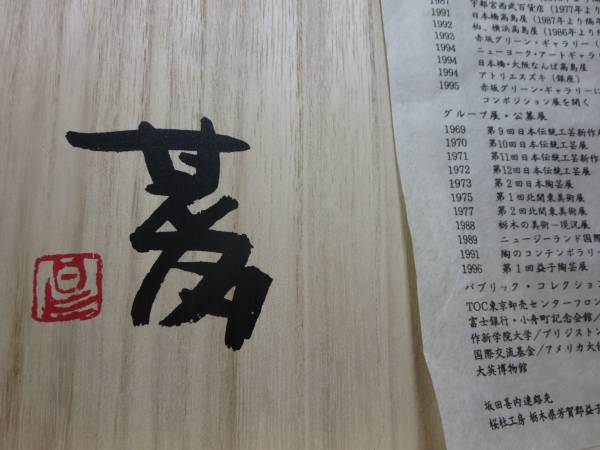 甚内
1987 宇都宮西武百貨店(1977年より
1991 日本橋高島屋(1987年より隔年
1992 柏、横浜高島屋(1986年より隔
1993 赤坂グリーン・ギャラリー(
1994 ニューヨーク・アートギャラ
1994 日本橋・大阪なんば高島屋
1994 アトリエスズキ(銀座)
1995 赤坂グリーン・ギャラリーに
コンポジション展を開く
グループ展・公募展
1969 第9回日本伝統工芸新作
1970 第10回日本伝統工芸新作
1971 第11回日本伝統工芸新作
1972 第12回日本伝統工芸展
1973 第2回日本陶芸展
1975 第1回北関東美術展
1977 第2回北関東美術展
1988 栃木の美術ー現況展
1989 ニュージーランド国際
1991 陶のコンテンポラリー
1996 第1回益子陶芸展
パブリック・コレクション
TOC東京卸売センターフロン
富士銀行・小舟町記念会館/
作新学院大学/ブリジストン
国際交流基金/アメリカ大使
大英博物館
坂田甚内連絡先
桜社工房 栃木県芳賀郡益子